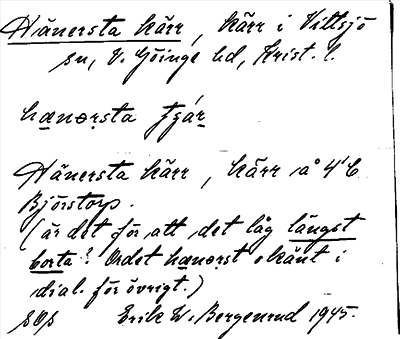 Hänersta kärr, kärr i Vittsjö
sn, V. Göinge hd, Krist. l.
hænərsta
Hänersta kärr, kärr å 4c
Björstorp.
(är det för att det låg längst
borta? Ordet hænərst okänt i
dial. för övrigt.)
Erik W. Bergenrud 1945.